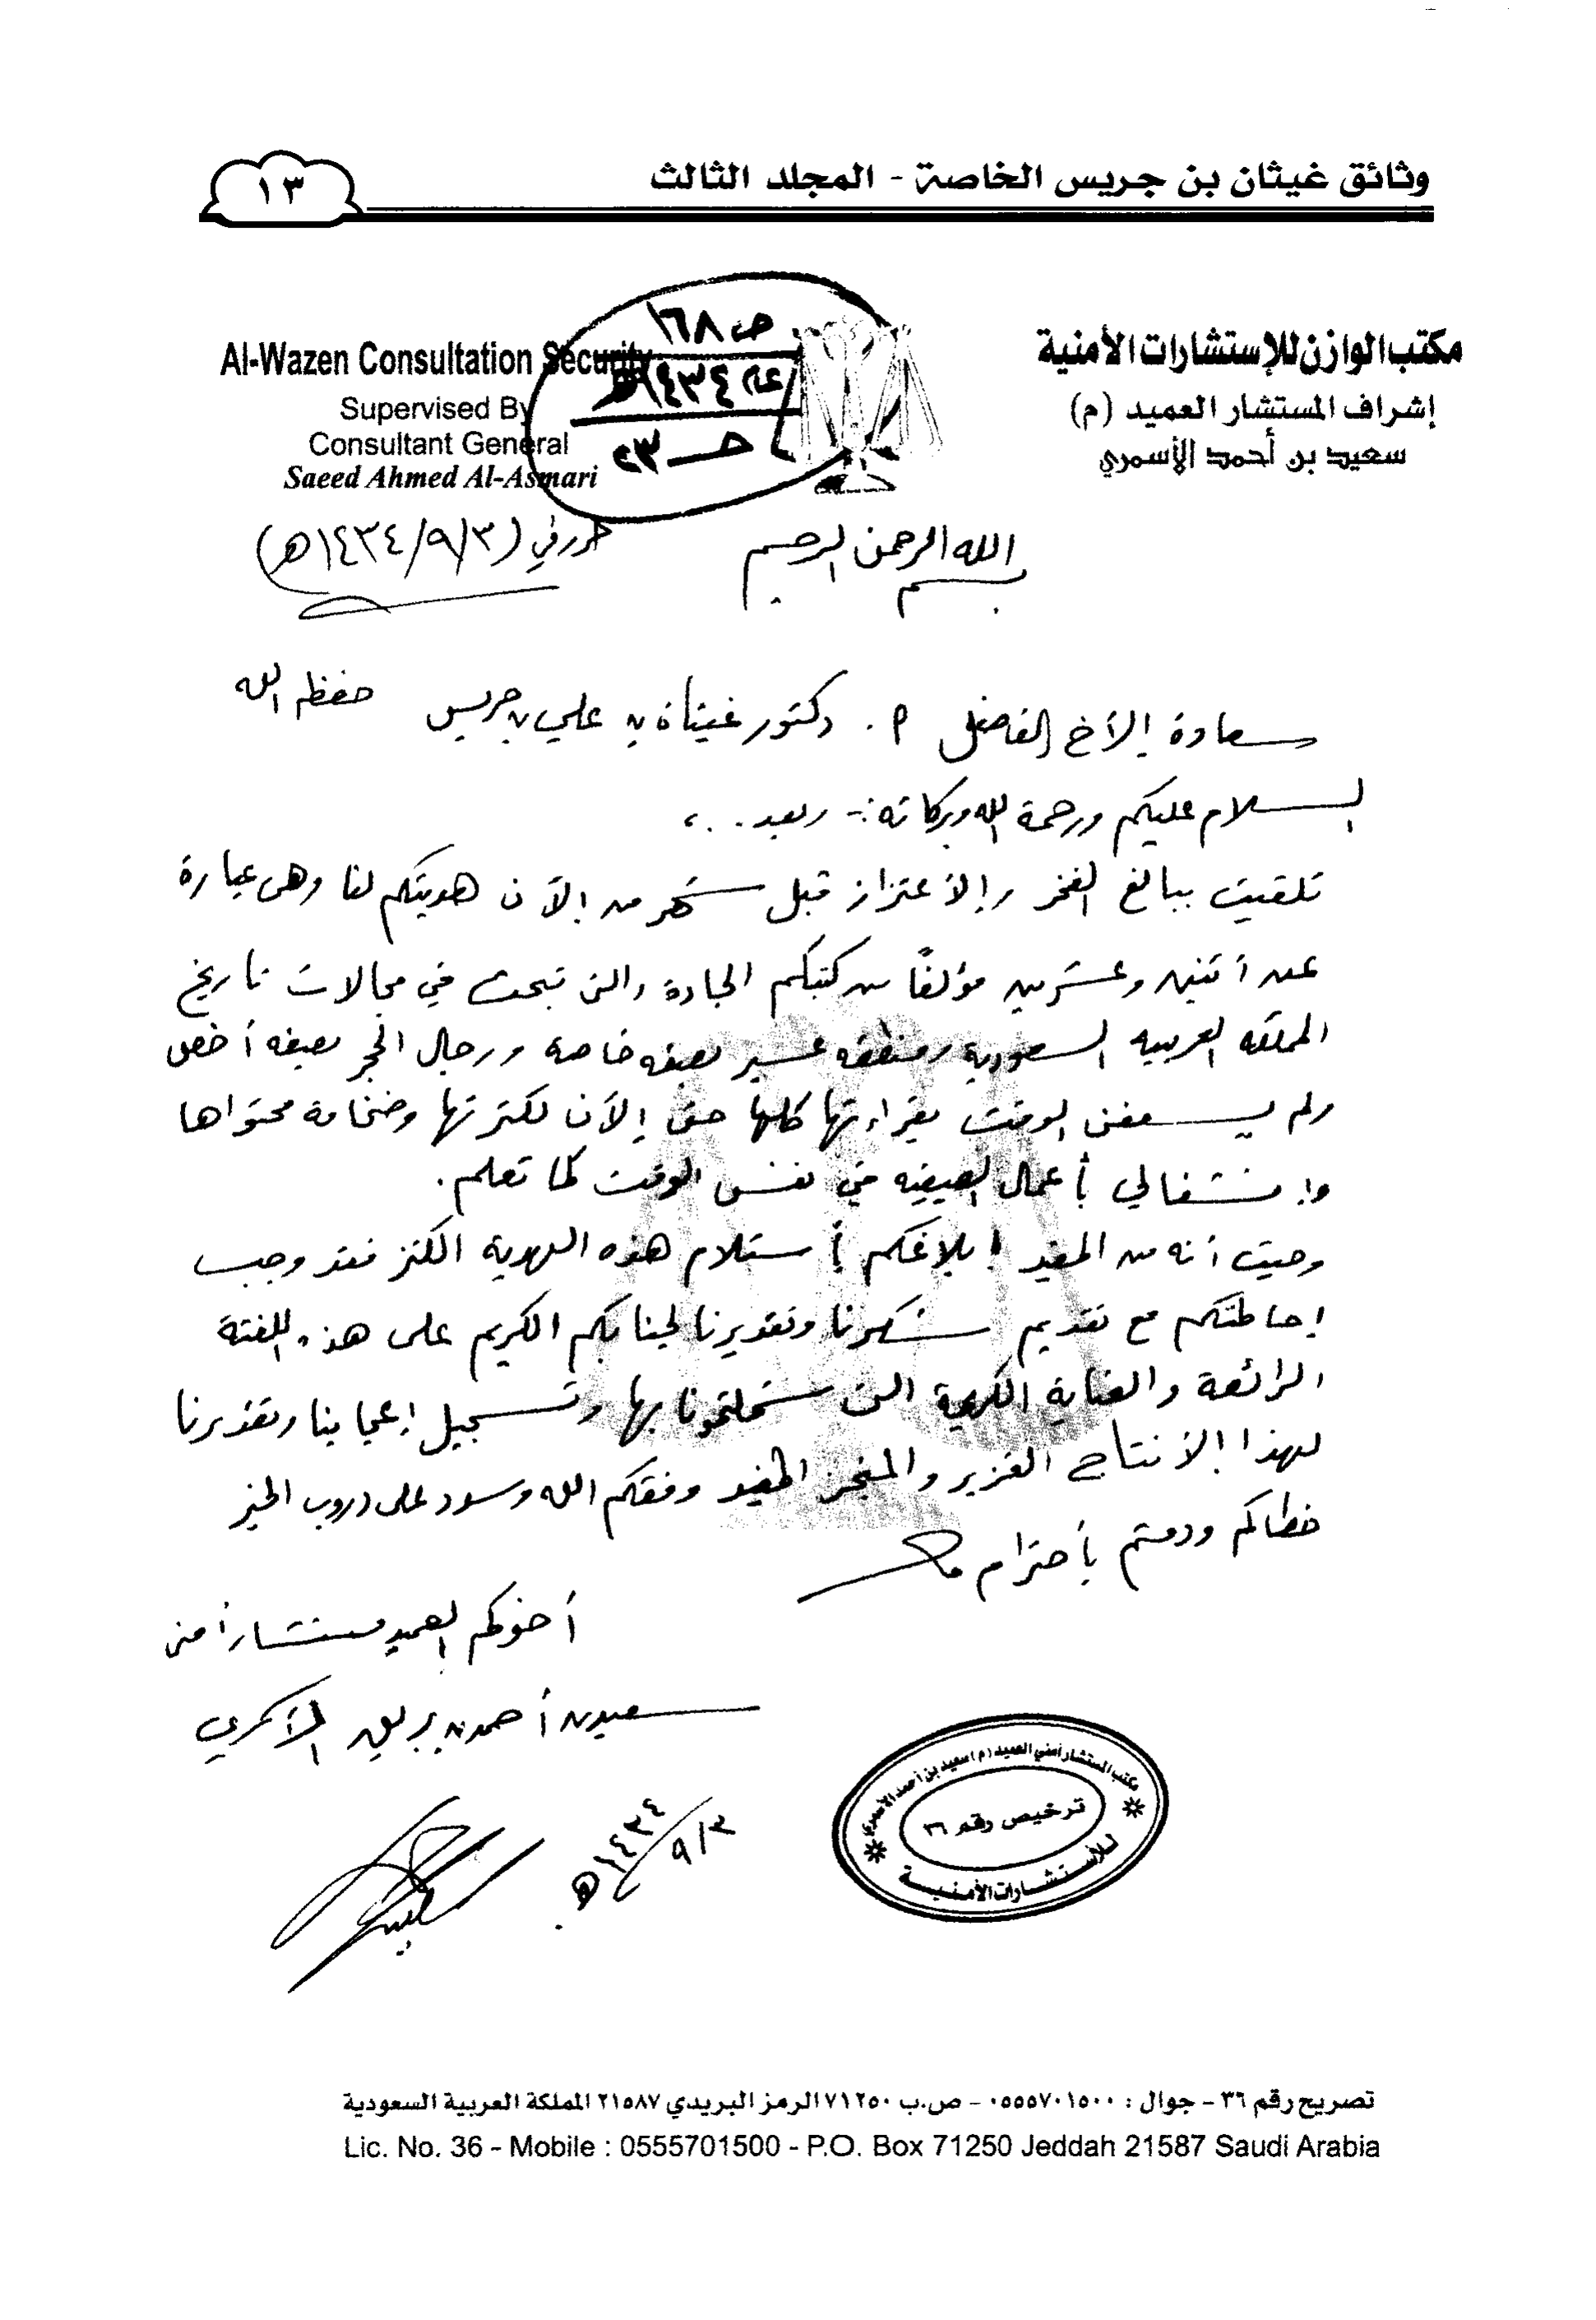 وثائق غيثان بن جريس الخاصة - المجلد الثالث
١٣
مكتب الوازن للإستشارات الأمنية
إشراف المستشار العميد (م)
سعيد بن أحمد الأسمري
Al-Wazen Consultation Security
Supervised By
Consultant General
Saeed Ahmed Al-Asmari
ص ١٦٨
عام ١٤٣٤هـ
بسم الله الرحمن الرحيم
حرر في (١٤٣٤/٩/٣هـ)
سعادة الأخ الفاضل أ. دكتور غيثان بن علي بن جريس حفظه الله
السلام عليكم ورحمة الله وبركاته :- وبعد . . ،
تلقيت ببالغ الفخر والأعتزاز قبل شهر من الآن هديتكم لنا وهى عبارة
عن أثنين وعشرين مؤلفاً من كتبكم الجادة والتى تبحث في مجالات تاريخ
المملكه العربيه السعودية ومنطقه عسير بصفه خاصة ورجال الحجر بصفه أخص
ولم يسعفنى الوقت بقراءتها كلها حتى الآن لكثرتها وضخامة محتواها
وانشغالي بأعمال الصيفيه في نفس الوقت كما تعلم .
وحيث أنه من المفيد ابلاغكم بأستلام هذه الهدية الكنز فقد وجب
إحاطتكم مع تقديم شكرنا وتقديرنا لجنابكم الكريم على هذه اللفتة
الرائعة والعناية الكريمة التى شملتمونا بها وتسجيل إعجابنا وتقديرنا
لهذا الأنتاج الغزير والمنجز المفيد وفقكم الله وسدد على دروب الخير
خطاكم ودمتم بأحترام
أخوكم العميد مستشار أمنى
سعيد بن أحمد بن الأسمري
١٤٣٤/٩/٣هـ
مكتب المستشار أمني العميد (م) سعيد بن أحمد الأسمري
ترخيص رقم ٣٦
للأستشارات الأمنية
تصريح رقم ٣٦ - جوال : ٠٥٥٥٧٠١٥٠٠ - ص.ب ٧١٢٥٠ الرمز البريدي ٢١٥٨٧ المملكة العربية السعودية
Lic. No. 36 - Mobile : 0555701500 - P.O. Box 71250 Jeddah 21587 Saudi Arabia